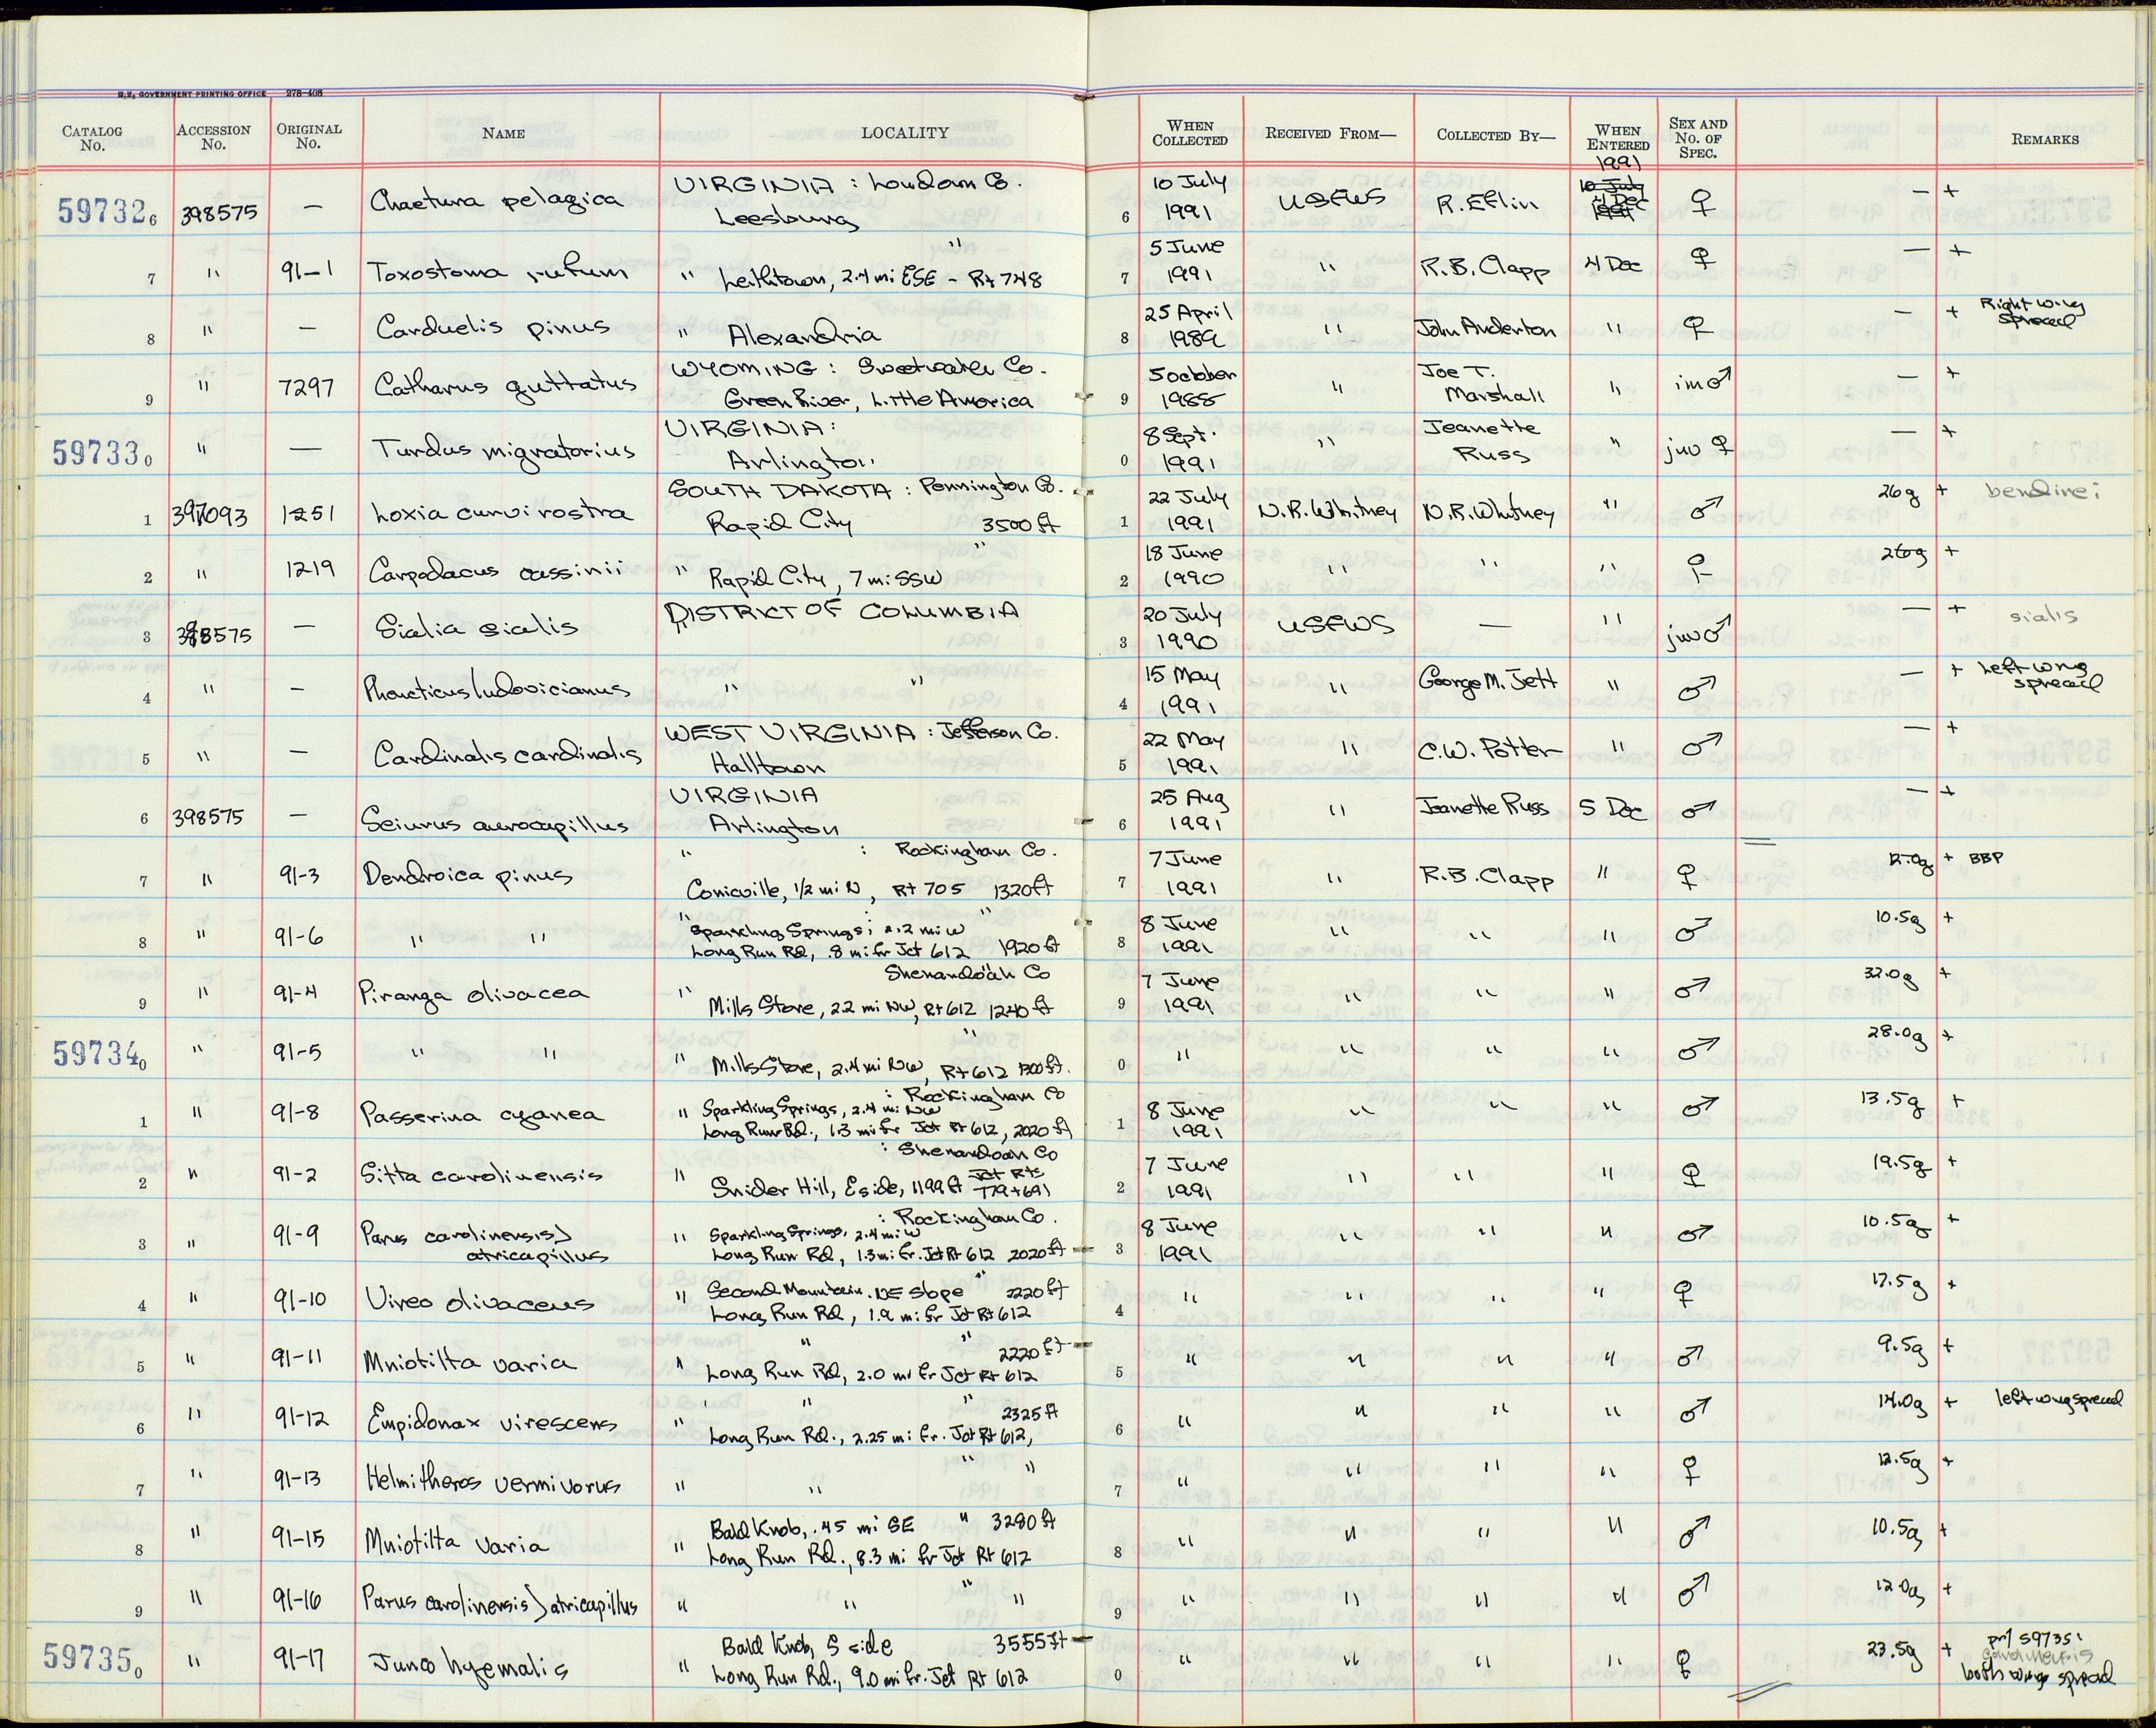 U.S. GOVERNMENT PRINTING OFFICE 278-408
CATALOG No. ACCESSION No. ORIGINAL No. NAME LOCALITY WHEN COLLECTED RECEIVED FROM— COLLECTED BY— WHEN ENTERED SEX AND No. OF SPEC. REMARKS
1991
VIRGINIA : Loudoun Co.
597326 398575 — Chaetura pelagica Leesburg 6 10 July 1991 USFWS R. Eflin 4 Dec ♀ — +
"
7 " 91-1 Toxostoma rufum " Leithtown, 2.4 mi ESE - Rt 748 7 5 June 1991 " R.B. Clapp 4 Dec ♀ — +
8 " — Carduelis pinus " Alexandria 8 25 April 1989 " John Anderton " ♀ — + Right wing spread
WYOMING : Sweetwater Co.
9 " 7297 Catharus guttatus Green River, Little America 9 5 October 1988 " Joe T. Marshall " im ♂ — +
VIRGINIA :
597330 " — Turdus migratorius Arlington 0 8 Sept. 1991 " Jeanette Russ " juv ♀ — +
SOUTH DAKOTA : Pennington Co.
1 397093 1251 Loxia curvirostra Rapid City 3500 ft 1 22 July 1991 N.R. Whitney N.R. Whitney " ♂ 26g + bendirei
"
2 " 1219 Carpodacus cassinii " Rapid City, 7 mi SSW 2 18 June 1990 " " " ♀ 26g +
DISTRICT OF COLUMBIA
3 398575 — Sialia sialis " 3 20 July 1990 USFWS — " juv ♂ — + sialis
4 " — Pheucticus ludovicianus " " 4 15 May 1991 " George M. Jett " ♂ — + Left wing spread
WEST VIRGINIA : Jefferson Co.
5 " — Cardinalis cardinalis Halltown 5 22 May 1991 " C.W. Potter " ♂ — +
VIRGINIA
6 398575 — Seiurus aurocapillus Arlington 6 25 Aug 1991 " Jeanette Russ 5 Dec ♂ — +
" : Rockingham Co.
7 " 91-3 Dendroica pinus Conicville, 1/2 mi N, Rt 705 1320 ft 7 7 June 1991 " R.B. Clapp " ♀ 12.0g + BBP
" : "
Sparkling Springs; 2.2 mi W
8 " 91-6 " " Long Run Rd, .8 mi fr Jct 612 1920 ft 8 8 June 1991 " " " ♂ 10.5g +
Shenandoah Co
9 " 91-4 Piranga olivacea " Mills Store, 2.2 mi NW, Rt 612 1240 ft 9 7 June 1991 " " " ♂ 32.0g +
"
597340 " 91-5 " " " Mills Store, 2.4 mi NW, Rt 612 1300 ft. 0 " " " " ♂ 28.0g +
: Rockingham Co
1 " 91-8 Passerina cyanea " Sparkling Springs, 2.4 mi NW
Long Run Rd., 1.3 mi fr Jct Rt 612, 2020 ft 1 8 June 1991 " " " ♂ 13.5g +
: Shenandoah Co
2 " 91-2 Sitta carolinensis " Snider Hill, E side, 1199 ft Jct Rts 779 + 691 2 7 June 1991 " " " ♀ 19.5g +
: Rockingham Co.
3 " 91-9 Parus carolinensis > atricapillus " Sparkling Springs, 2.4 mi W
Long Run Rd, 1.3 mi fr. Jct Rt 612 2020 ft 3 8 June 1991 " " " ♂ 10.5g +
"
4 " 91-10 Vireo olivaceus " Second Mountain. NE slope 2220 ft
Long Run Rd, 1.9 mi fr Jct Rt 612 4 " " " " ♀ 17.5g +
" "
2220 ft
5 " 91-11 Mniotilta varia " Long Run Rd, 2.0 mi fr Jct Rt 612 5 " " " " ♂ 9.5g +
" "
2325 ft
6 " 91-12 Empidonax virescens " Long Run Rd., 2.25 mi fr. Jct Rt 612, 6 " " " " ♂ 14.0g + left wing spread
" "
7 " 91-13 Helmitheros vermivorus " " 7 " " " " ♀ 12.5g +
8 " 91-15 Mniotilta varia " Bald Knob, .45 mi SE " 3280 ft
Long Run Rd., 8.3 mi fr Jct Rt 612 8 " " " " ♂ 10.5g +
"
9 " 91-16 Parus carolinensis > atricapillus " " " 9 " " " " ♂ 12.0g +
597350 " 91-17 Junco hyemalis " Bald Knob, S side 3555 ft
Long Run Rd., 9.0 mi fr. Jct Rt 612 0 " " " " ♀ 23.5g + pr/ 597351
carolinensis
both wing spread